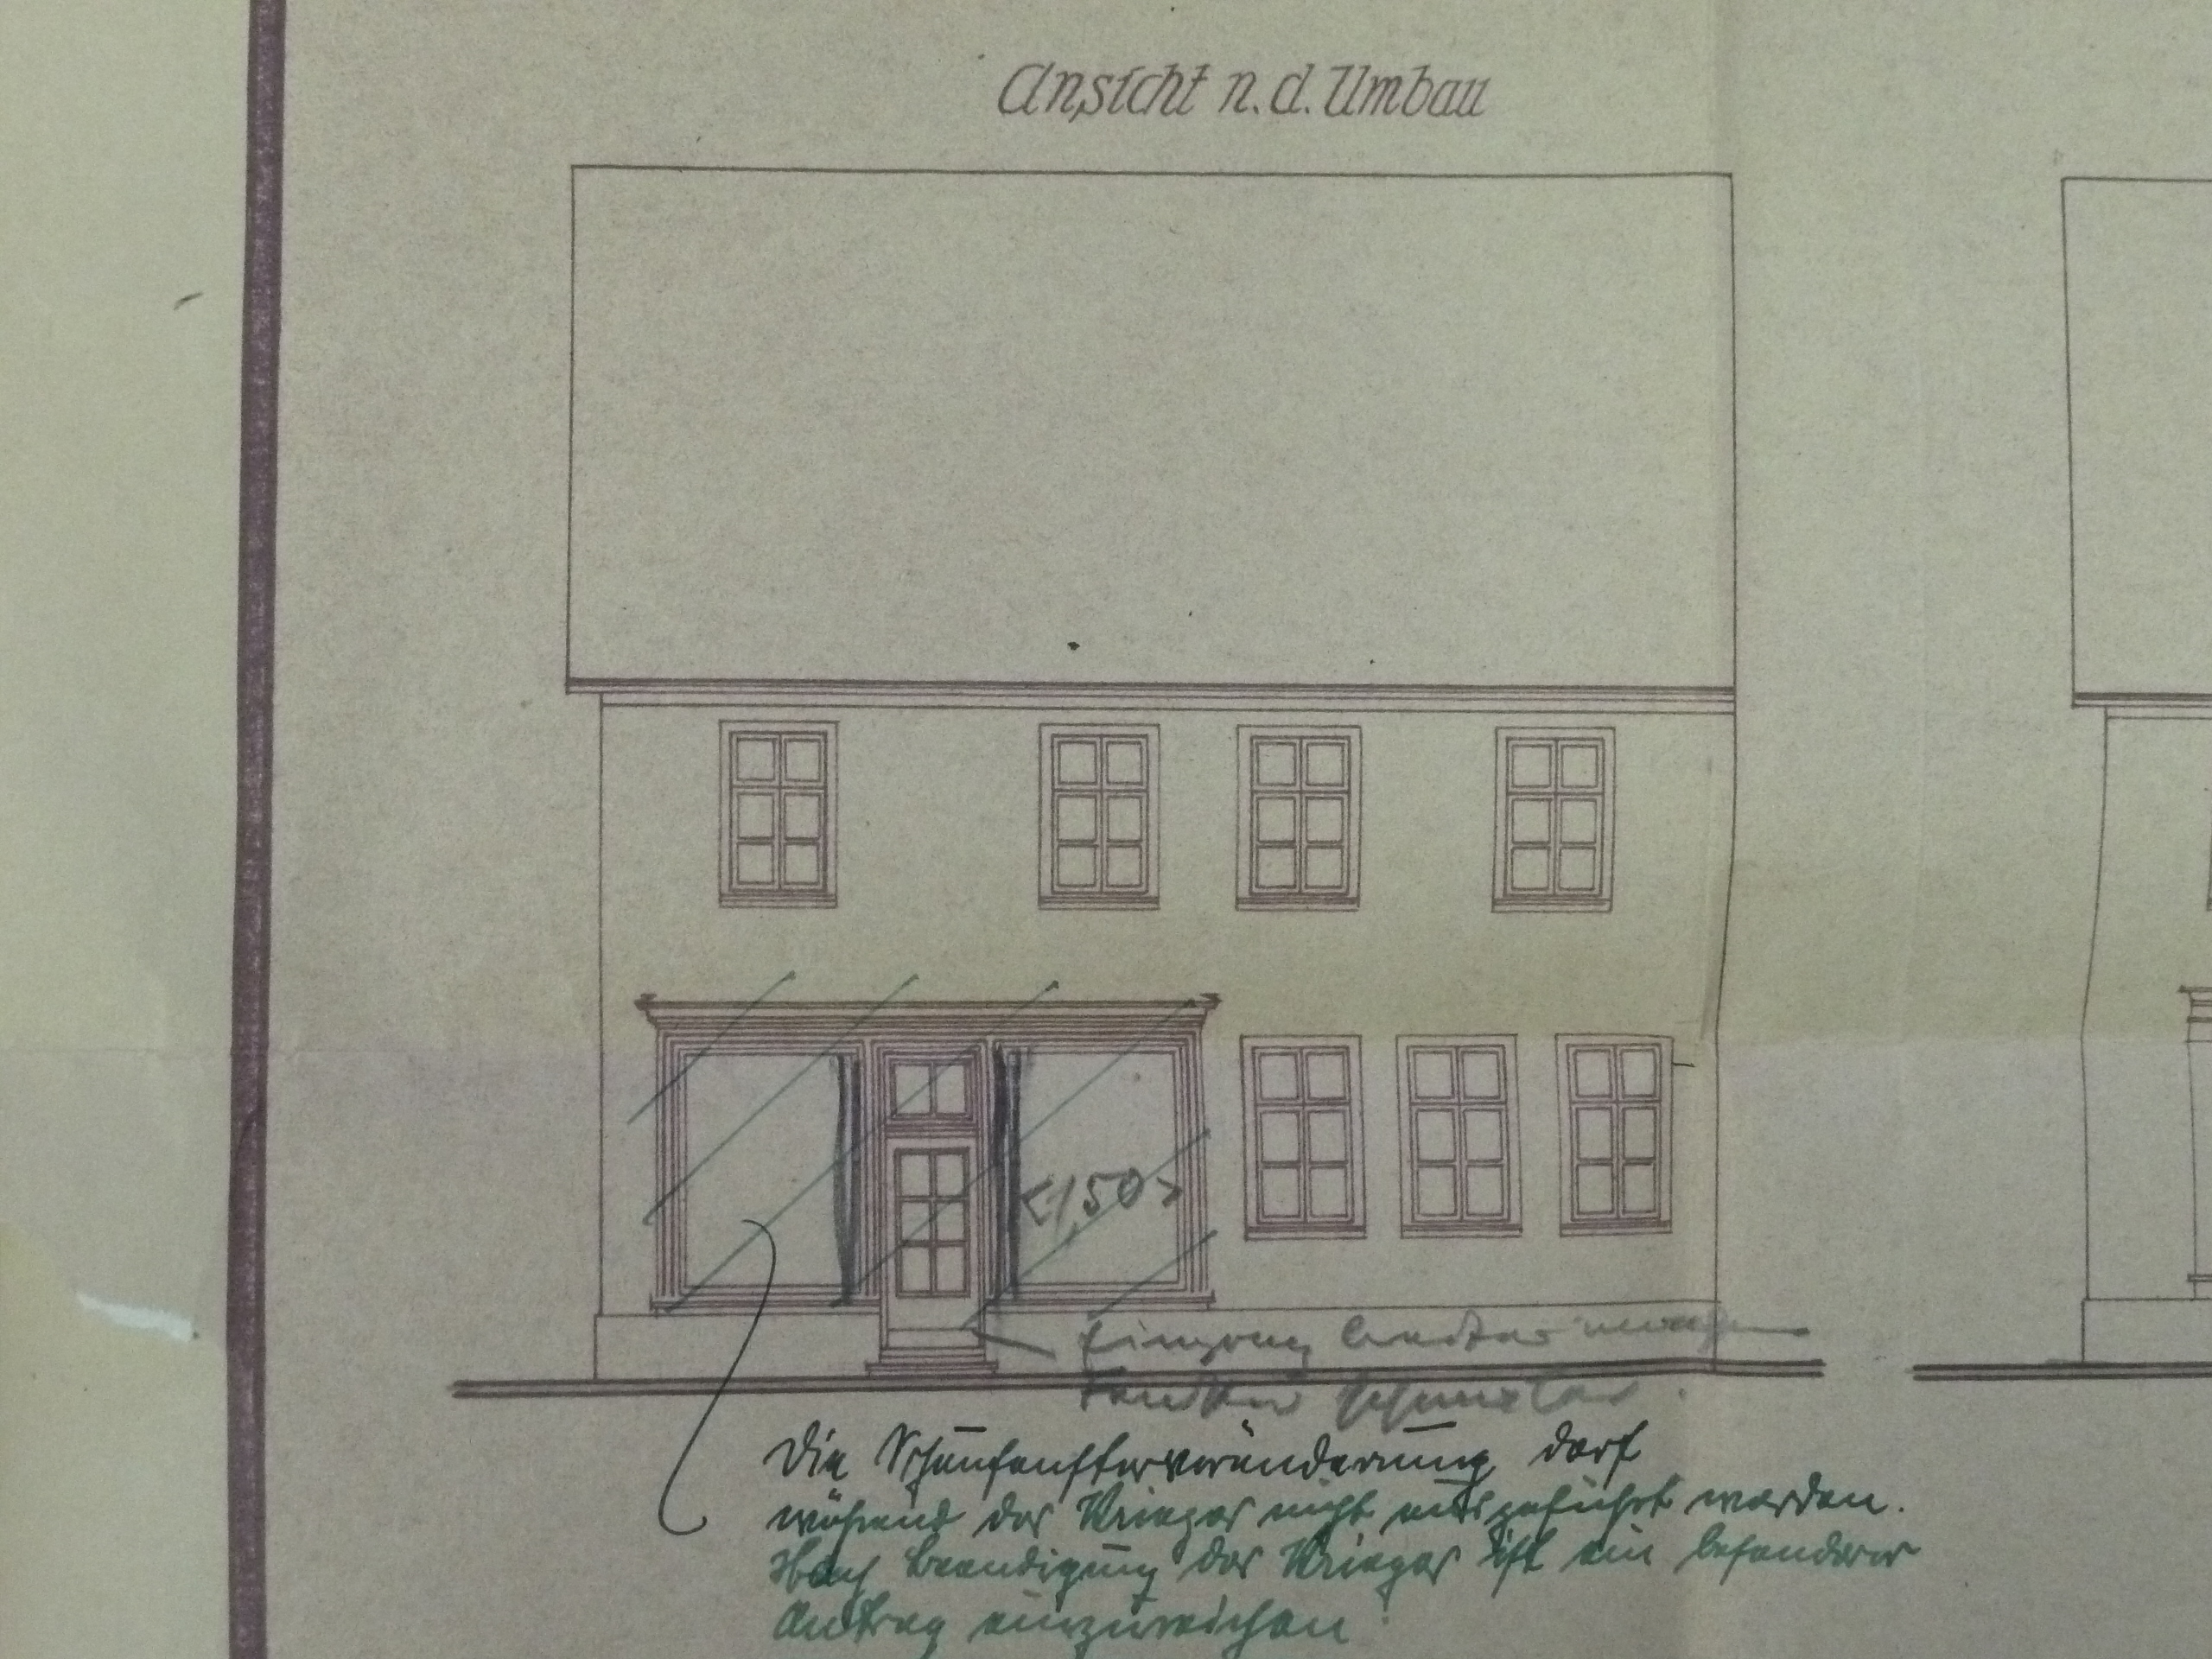 Ansicht n. d. Umbau
<1,50>
Eingang breiter
Fenster schmäler.
Die Schaufensterveränderung darf
während des Krieges nicht ausgeführt werden.
Nach Beendigung des Krieges ist ein besonderer
Antrag einzureichen!